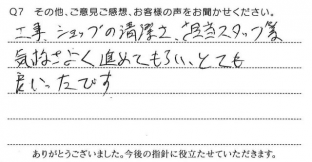 Q7 その他、ご意見ご感想、お客様の声をお聞かせください。
工事、ショップの清潔さ、担当スタッフ等
気持ちよく進めてもらい、とても
良かったです
ありがとうございました。今後の指針に役立たせていただきます。